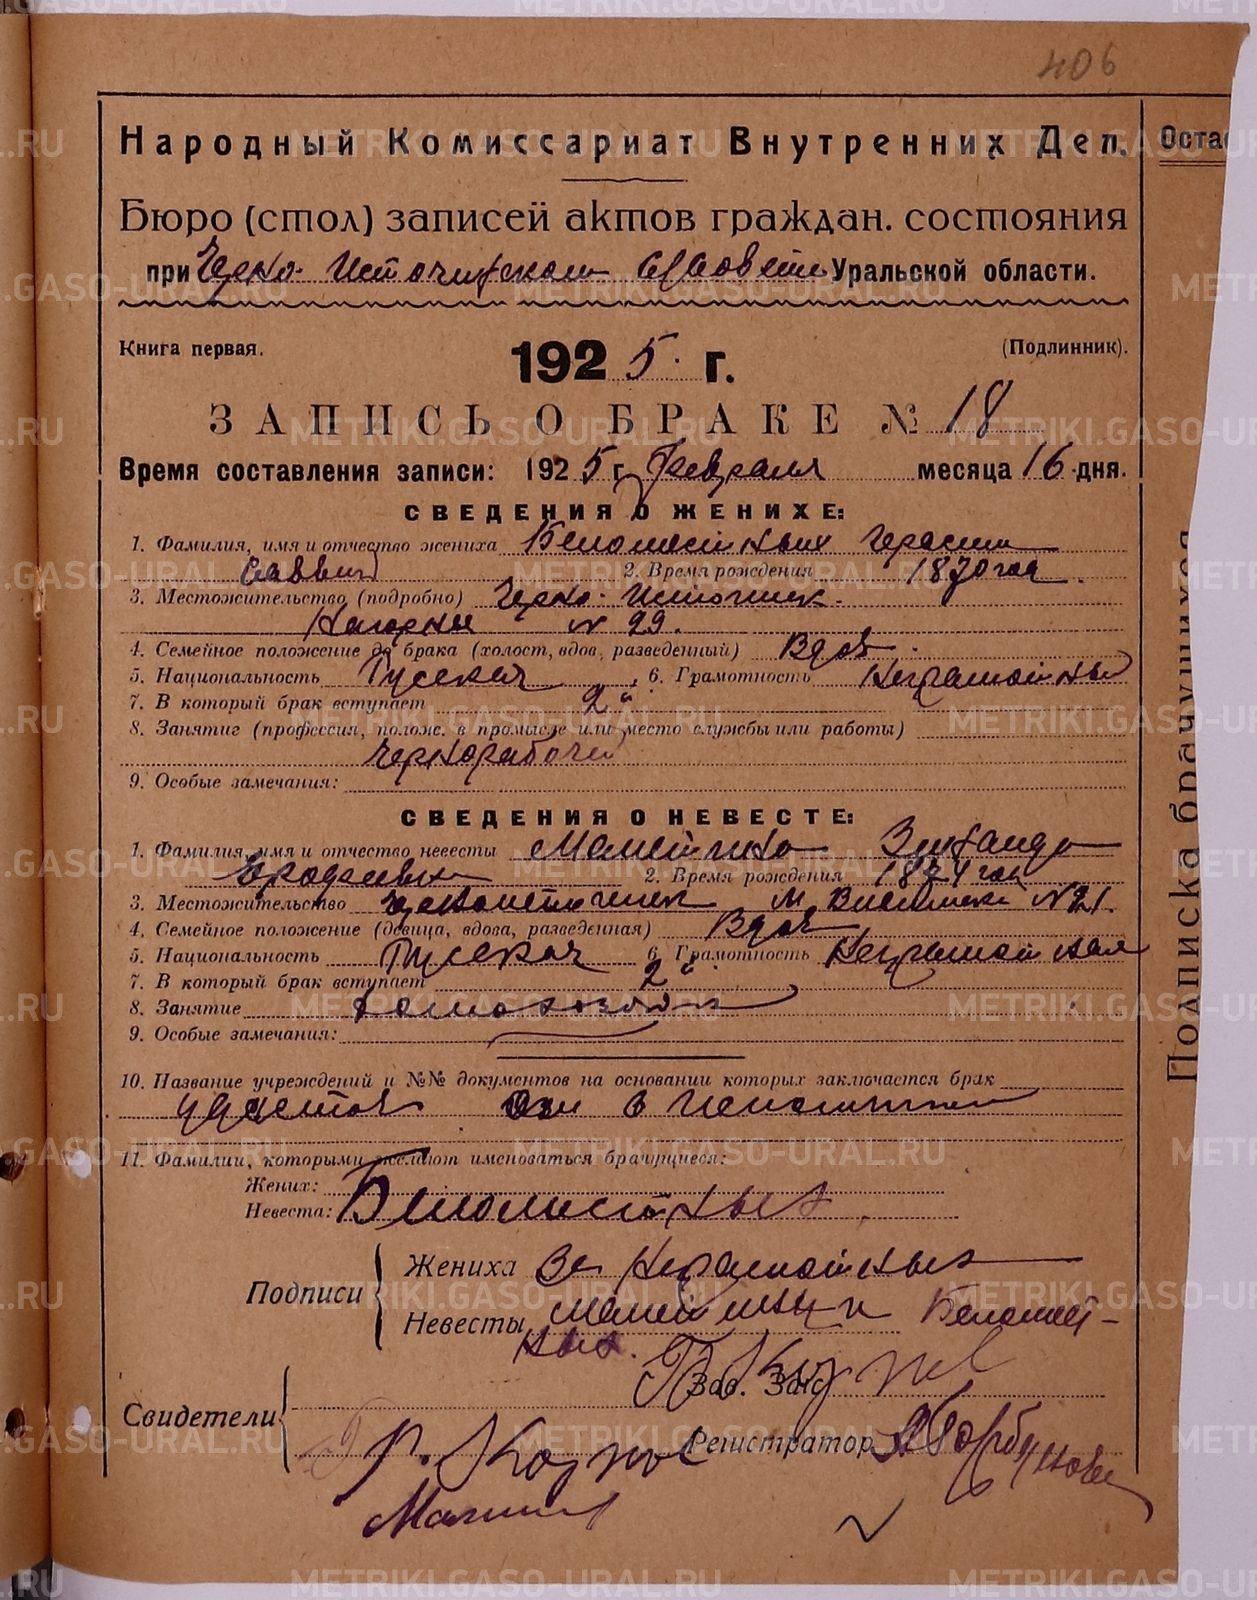 406
Народный Комиссариат Внутренних Дел.
Бюро (стол) записей актов граждан. состояния
при Черно-Источинском с/совете Уральской области.
Книга первая.
(Подлинник).
1925 г.
ЗАПИСЬ О БРАКЕ № 18
Время составления записи: 1925 г. Февраля месяца 16 дня.
СВЕДЕНИЯ О ЖЕНИХЕ:
1. Фамилия, имя и отчество жениха Беломестных Герасим
Саввич 2. Время рождения 1870 год.
3. Местожительство (подробно) Черно-Источинск.
Нагорная № 29.
4. Семейное положение до брака (холост, вдов, разведенный) Вдов.
5. Национальность Русская, 6. Грамотность Неграмотный
7. В который брак вступает 2й
8. Занятие (професcия, полож. в промысле или место службы или работы)
Чернорабочий
9. Особые замечания:
СВЕДЕНИЯ О НЕВЕСТЕ:
1. Фамилия, имя и отчество невесты Зинаида
2. Время рождения 1874 год
3. Местожительство Черноисточинск М. № 21.
4. Семейное положение (девица, вдова, разведенная) Вдов
5. Национальность Русская 6. Грамотность Неграмотная
7. В который брак вступает 2й
8. Занятие
9. Особые замечания:
10. Название учреждений и №№ документов на основании которых заключается брак
11. Фамилии, которыми желают именоваться брачущиеся:
Жених:
Невеста: Беломестных.
Подписи
Жениха За неграмотных
Невесты Беломест-
ных.
Зав. Загс
Свидетели
Регистратор Горбунова
Оста
Подписка брачущихся
METRIKI.GASO-URAL.RU